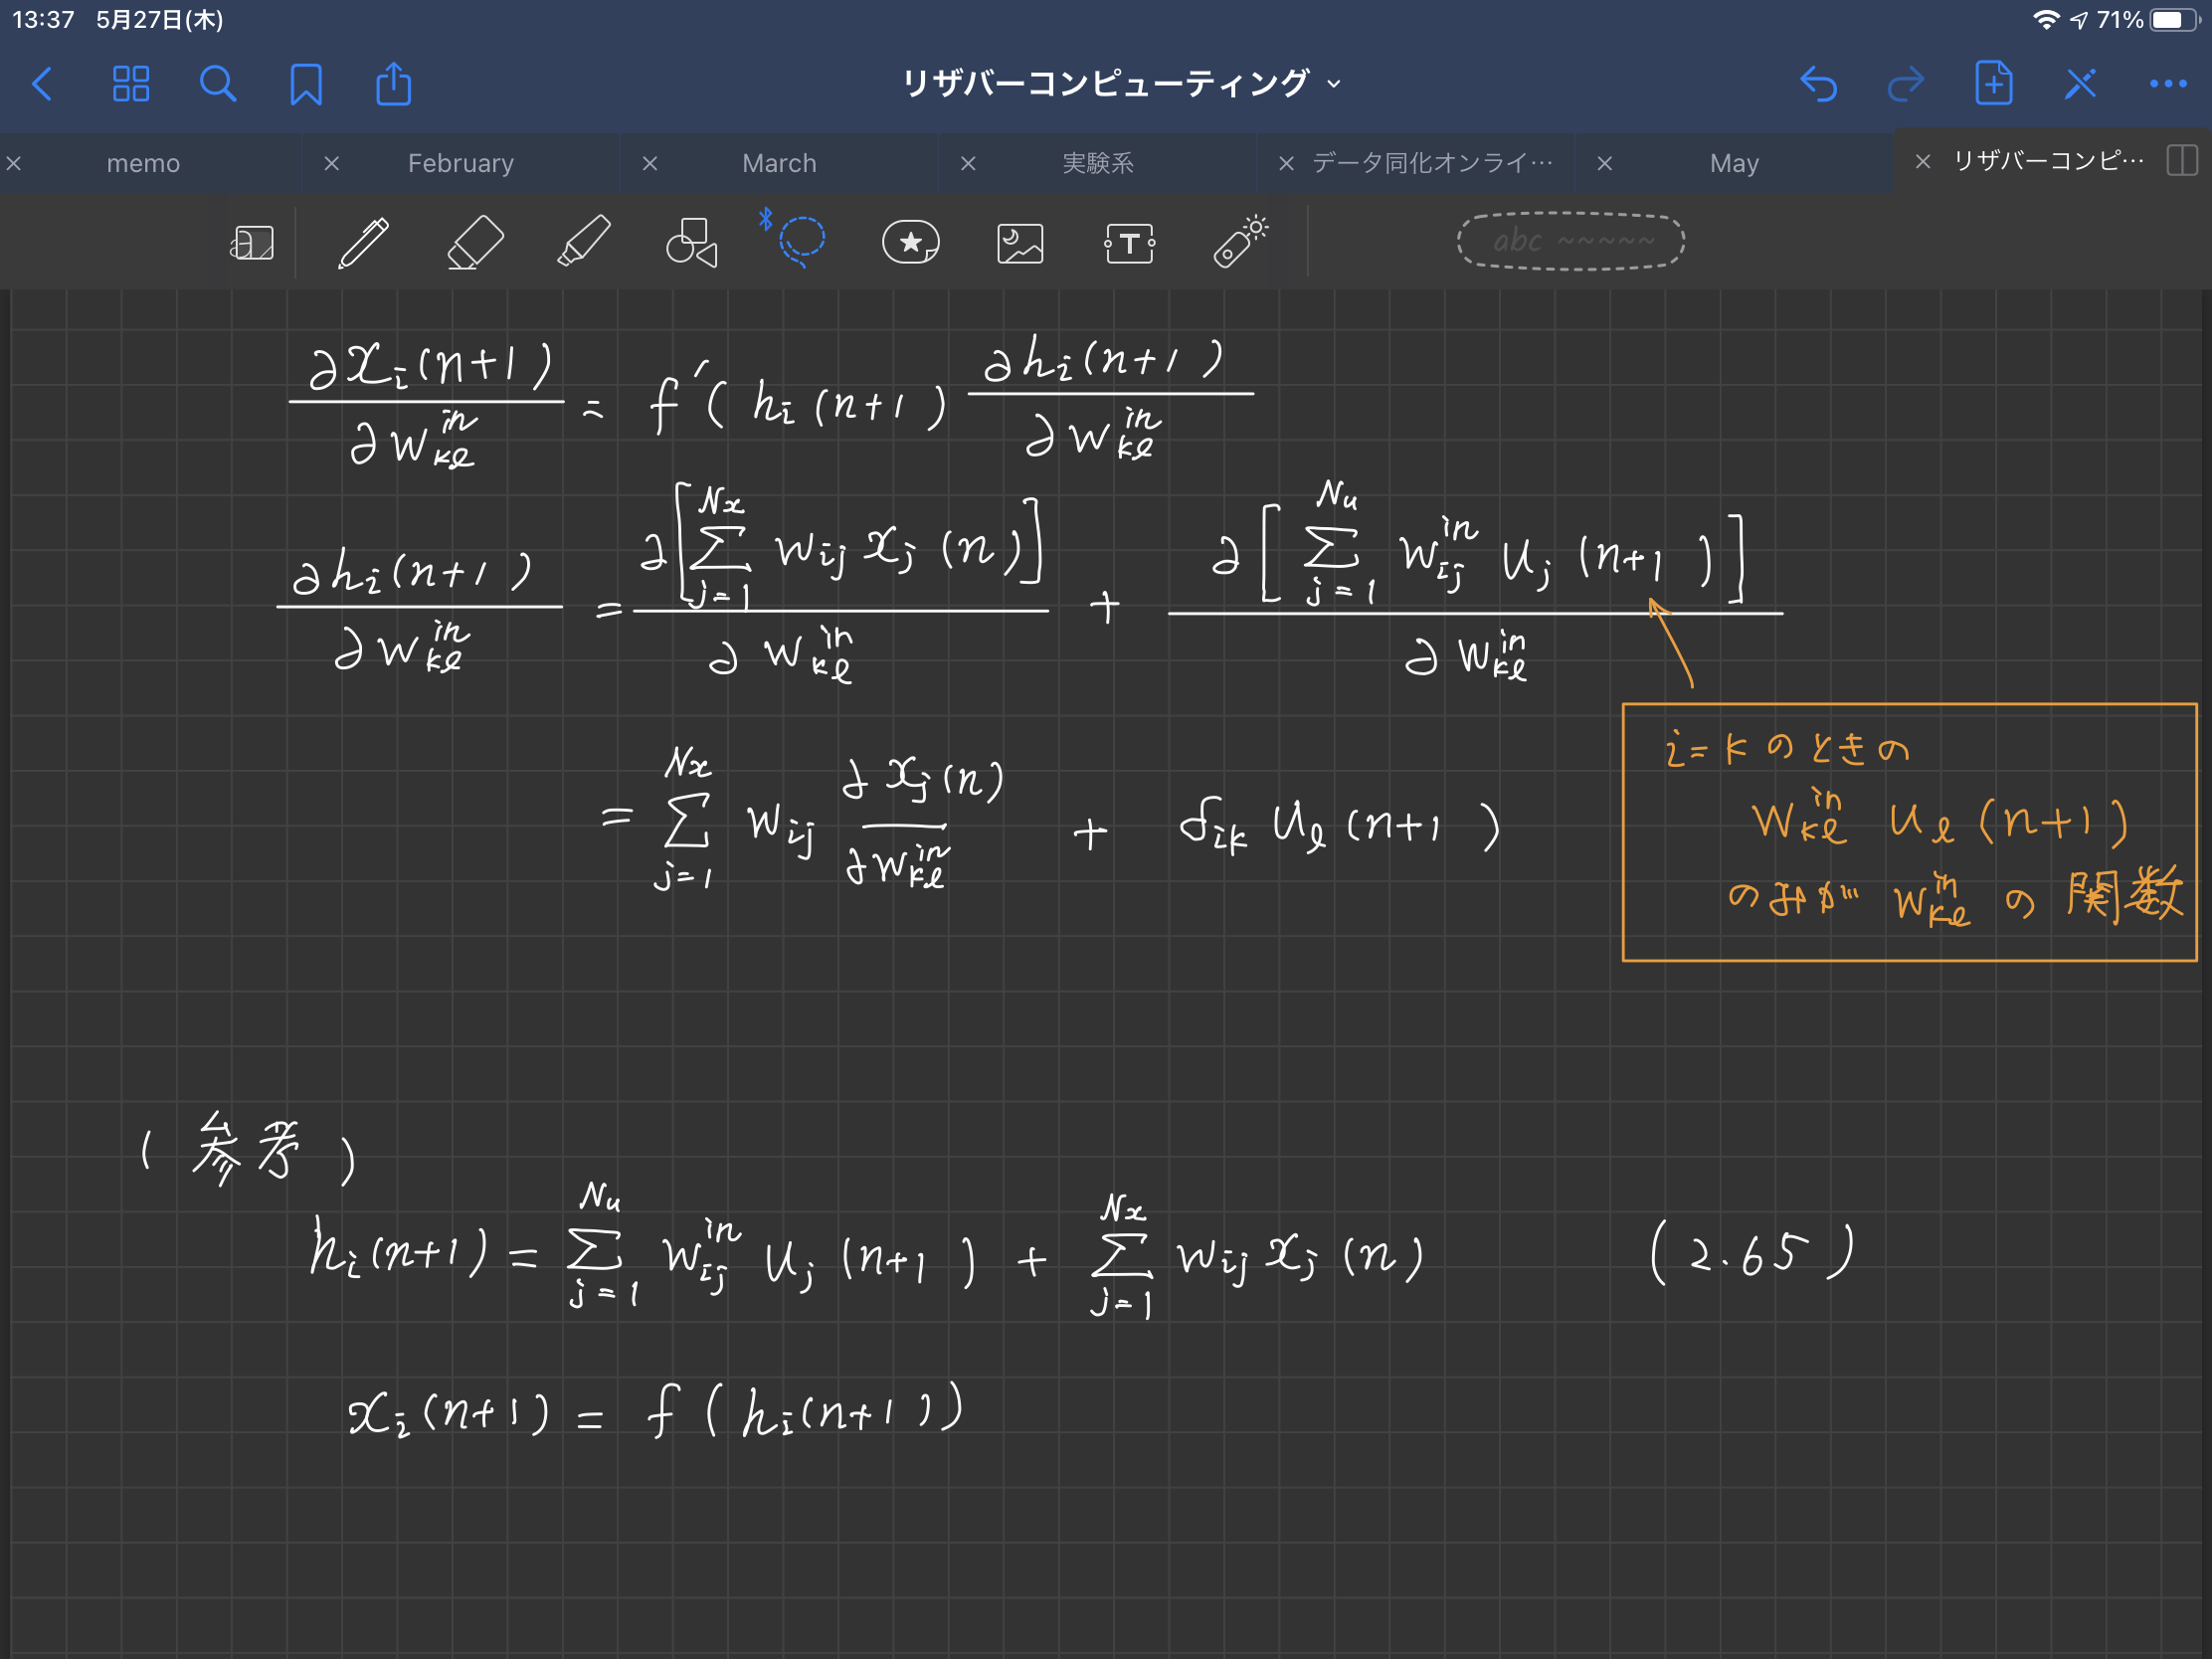 13:37 5月27日(木) 71%
リザバーコンピューティング
memo February March 実験系 データ同化オンライ… May リザバーコンピ…
abc ~~~~~
∂x_i(n+1)/∂w_{kl}^{in} = f'(h_i(n+1) ∂h_i(n+1)/∂w_{kl}^{in}
∂h_i(n+1)/∂w_{kl}^{in} = ∂[Σ_{j=1}^{Nx} w_{ij} x_j(n)]/∂w_{kl}^{in} + ∂[Σ_{j=1}^{Nu} w_{ij}^{in} u_j(n+1)]/∂w_{kl}^{in}
= Σ_{j=1}^{Nx} w_{ij} ∂x_j(n)/∂w_{kl}^{in} + δ_{ik} u_l(n+1)
i=kのときの
w_{kl}^{in} u_l(n+1)
のみが w_{kl}^{in} の関数
(参考)
h_i(n+1) = Σ_{j=1}^{Nu} w_{ij}^{in} u_j(n+1) + Σ_{j=1}^{Nx} w_{ij} x_j(n) (2.65)
x_i(n+1) = f(h_i(n+1))